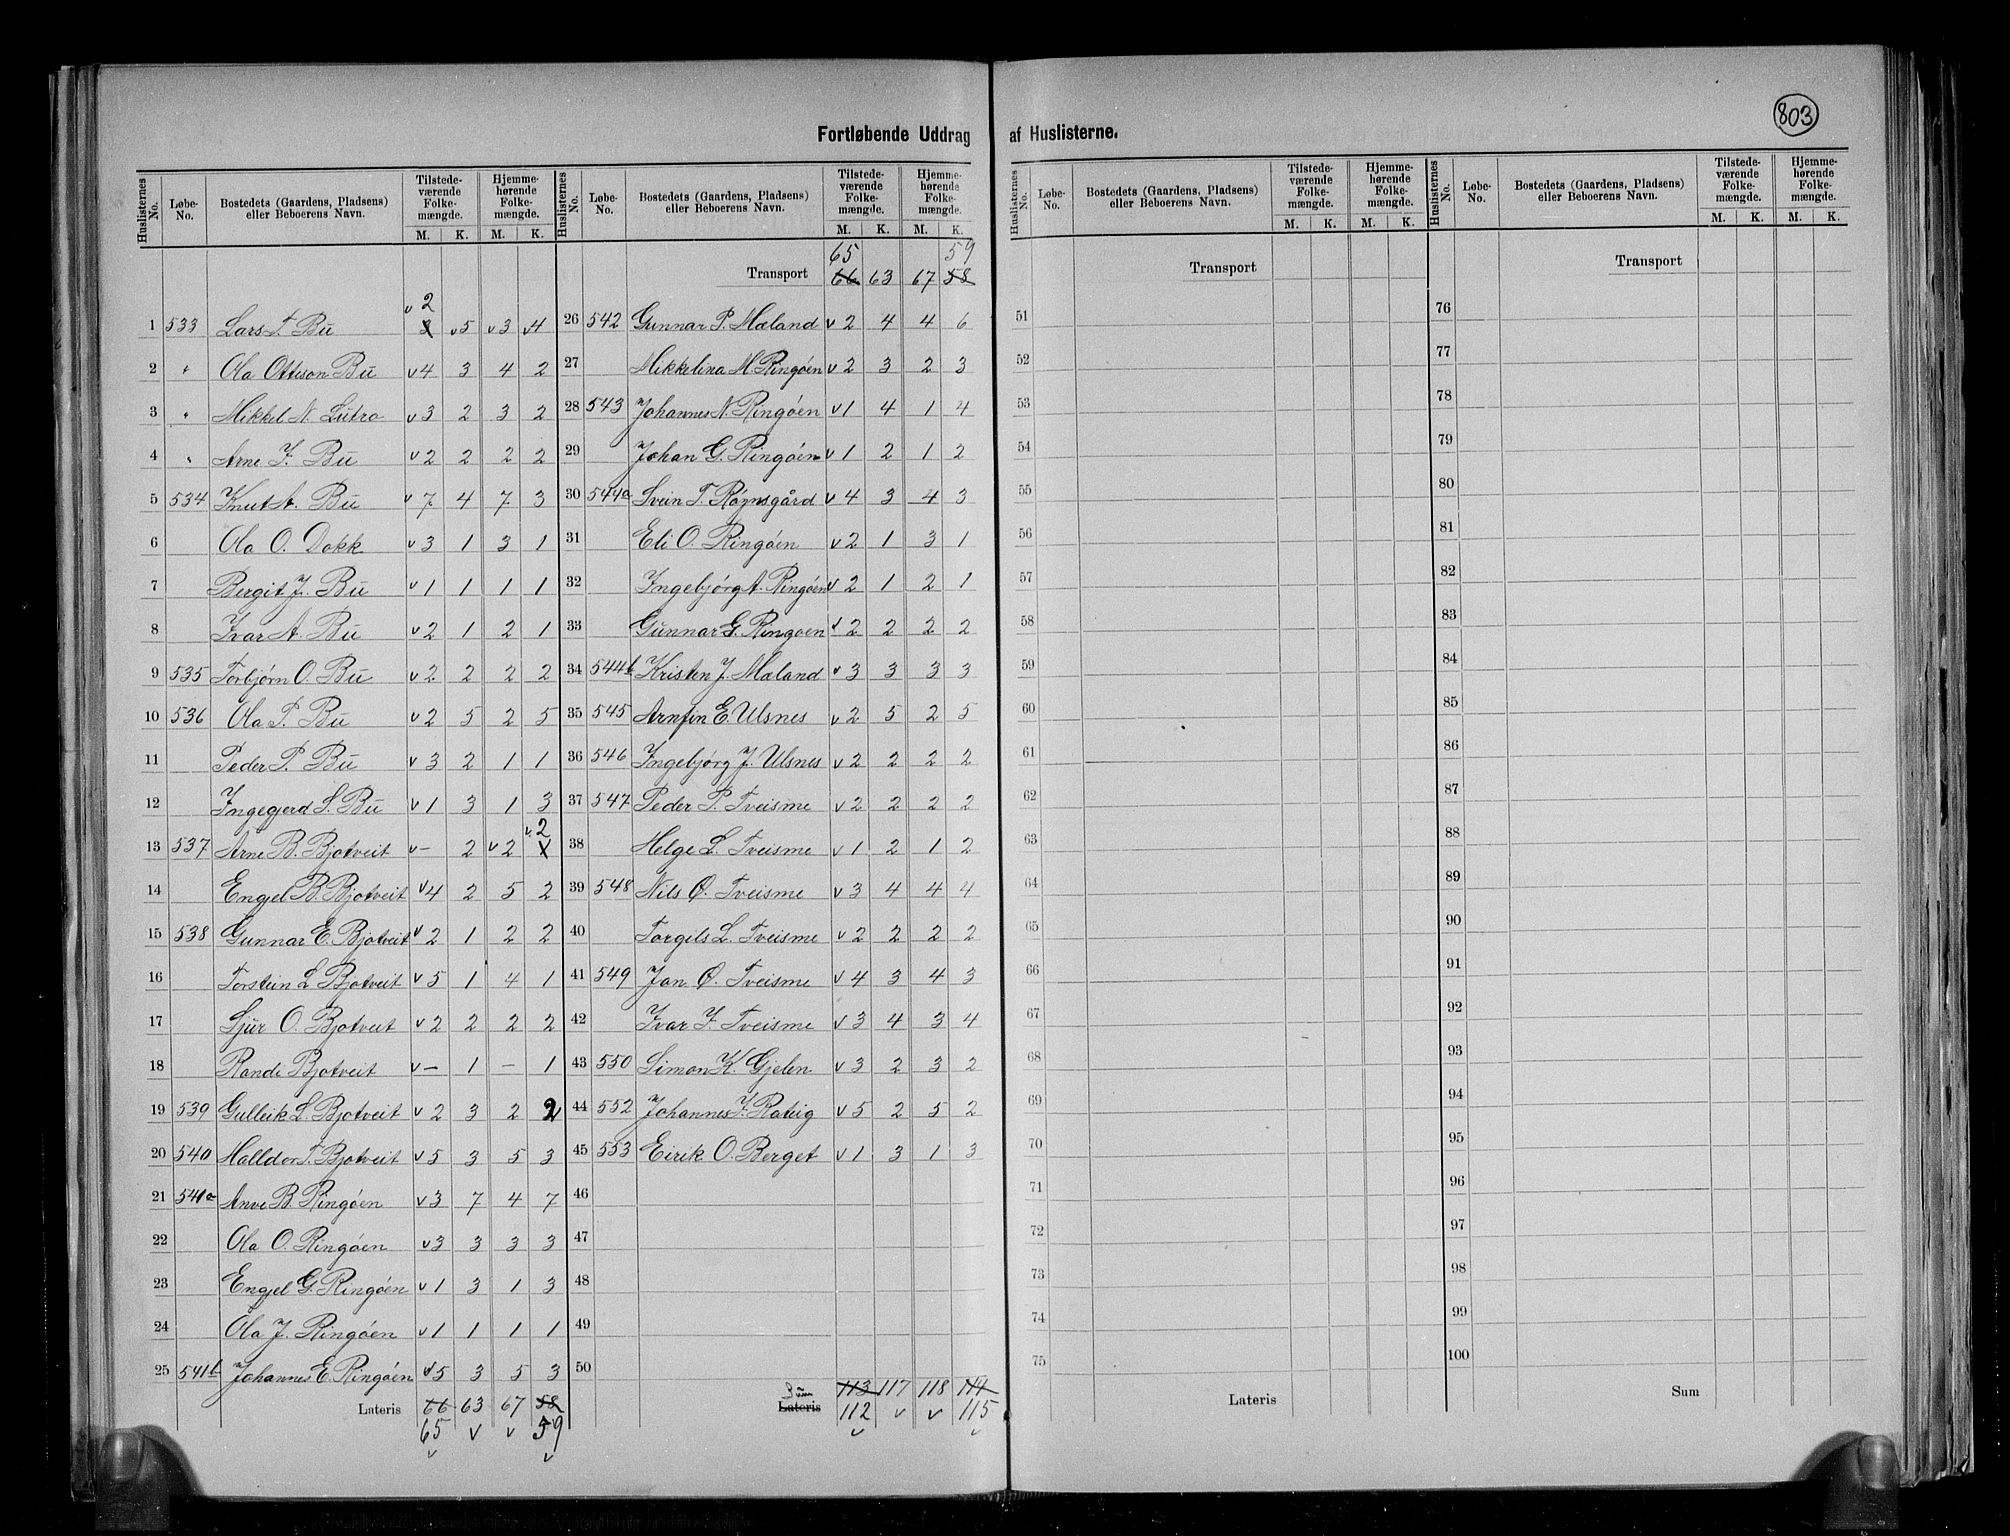 803
Fortløbende Uddrag af Huslisterne.
Huslisternes No. Løbe-No. Bostedets (Gaardens, Pladsens) eller Beboerens Navn. Tilstedeværende Folkemængde. M. K. Hjemmehørende Folkemængde. M. K.
1 533 Lars T Bu v 3 2 v5 v3 v4
2 " Ola Ottison Bu v4 3 4 2
3 " Mikkel N. Lutro v3 2 3 2
4 " Arne J. Bu v2 2 2 2
5 534 Knut A. Bu v7 4 7 3
6 Ola O. Dokk v3 1 3 1
7 Bergit J. Bu v1 1 1 1
8 Ivar A. Bu v2 1 2 1
9 535 Torbjørn O. Bu v2 2 2 2
10 536 Ola P. Bu v2 5 2 5
11 Peder P. Bu v3 2 1 1
12 Ingegjerd S. Bu v1 3 1 3
13 537 Arne B. Bjotveit v- 2 v2 v.2
14 Engel B. Bjotveit v4 2 5 2
15 538 Gunnar E. Bjotveit v2 1 2 2
16 Torstein L Bjotveit v5 1 4 1
17 Sjur O. Bjotveit v2 2 2 2
18 Randi Bjotveit v- 1 - 1
19 539 Gulleik L. Bjotveit v2 3 2 2
20 540 Halldor T. Bjotveit v5 3 5 3
21 541a Arne B. Ringøen v3 7 4 7
22 Ola O. Ringøen v3 3 3 3
23 Engel G. Ringøen v1 3 1 3
24 Ola J. Ringøen v1 1 1 1
25 541b Johannes E. Ringøen v5 3 5 3
Lateris 66 63 67 58
65 v v 59
v v
Huslisternes No. Løbe-No. Bostedets (Gaardens, Pladsens) eller Beboerens Navn. Tilstedeværende Folkemængde. M. K. Hjemmehørende Folkemængde. M. K.
65 59
Transport 66 63 67 58
26 542 Gunnar P. Mæland v2 4 4 6
27 Mikkelina M. Ringøen v2 3 2 3
28 543 Johannes N. Ringøen v1 4 1 4
29 Johan G. Ringøen v1 2 1 2
30 544a Svein T. Røynsgård v4 3 4 3
31 Eli O. Ringøen v2 1 3 1
32 Ingebjørg A. Ringøen v2 1 2 1
33 Gunnar G. Ringøen v2 2 2 2
34 544b Kristen J. Mæland v3 3 3 3
35 545 Arnfin E. Ulsnes v2 5 2 5
36 546 Ingebjørg J. Ulsnes v2 2 2 2
37 547 Peder P. Tveisme v2 2 2 2
38 Helge L. Tveisme v1 2 1 2
39 548 Nils O. Tveisme v3 4 4 4
40 Torgils L. Tveisme v2 2 2 2
41 549 Jon O. Tveisme v4 3 4 3
42 Ivar J. Tveisme v3 4 3 4
43 550 Simon K. Gjelen v3 2 3 2
44 552 Johannes J. v5 2 5 2
45 553 Eirik O. Berget v1 3 1 3
46
47
48
49
50
Sum 113 117 118 114
Lateris 112 v v 115
v v
Huslisternes No. Løbe-No. Bostedets (Gaardens, Pladsens) eller Beboerens Navn. Tilstedeværende Folkemængde. M. K. Hjemmehørende Folkemængde. M. K.
Transport
51
52
53
54
55
56
57
58
59
60
61
62
63
64
65
66
67
68
69
70
71
72
73
74
75
Lateris
Huslisternes No. Løbe-No. Bostedets (Gaardens, Pladsens) eller Beboerens Navn. Tilstedeværende Folkemængde. M. K. Hjemmehørende Folkemængde. M. K.
Transport
76
77
78
79
80
81
82
83
84
85
86
87
88
89
90
91
92
93
94
95
96
97
98
99
100
Sum